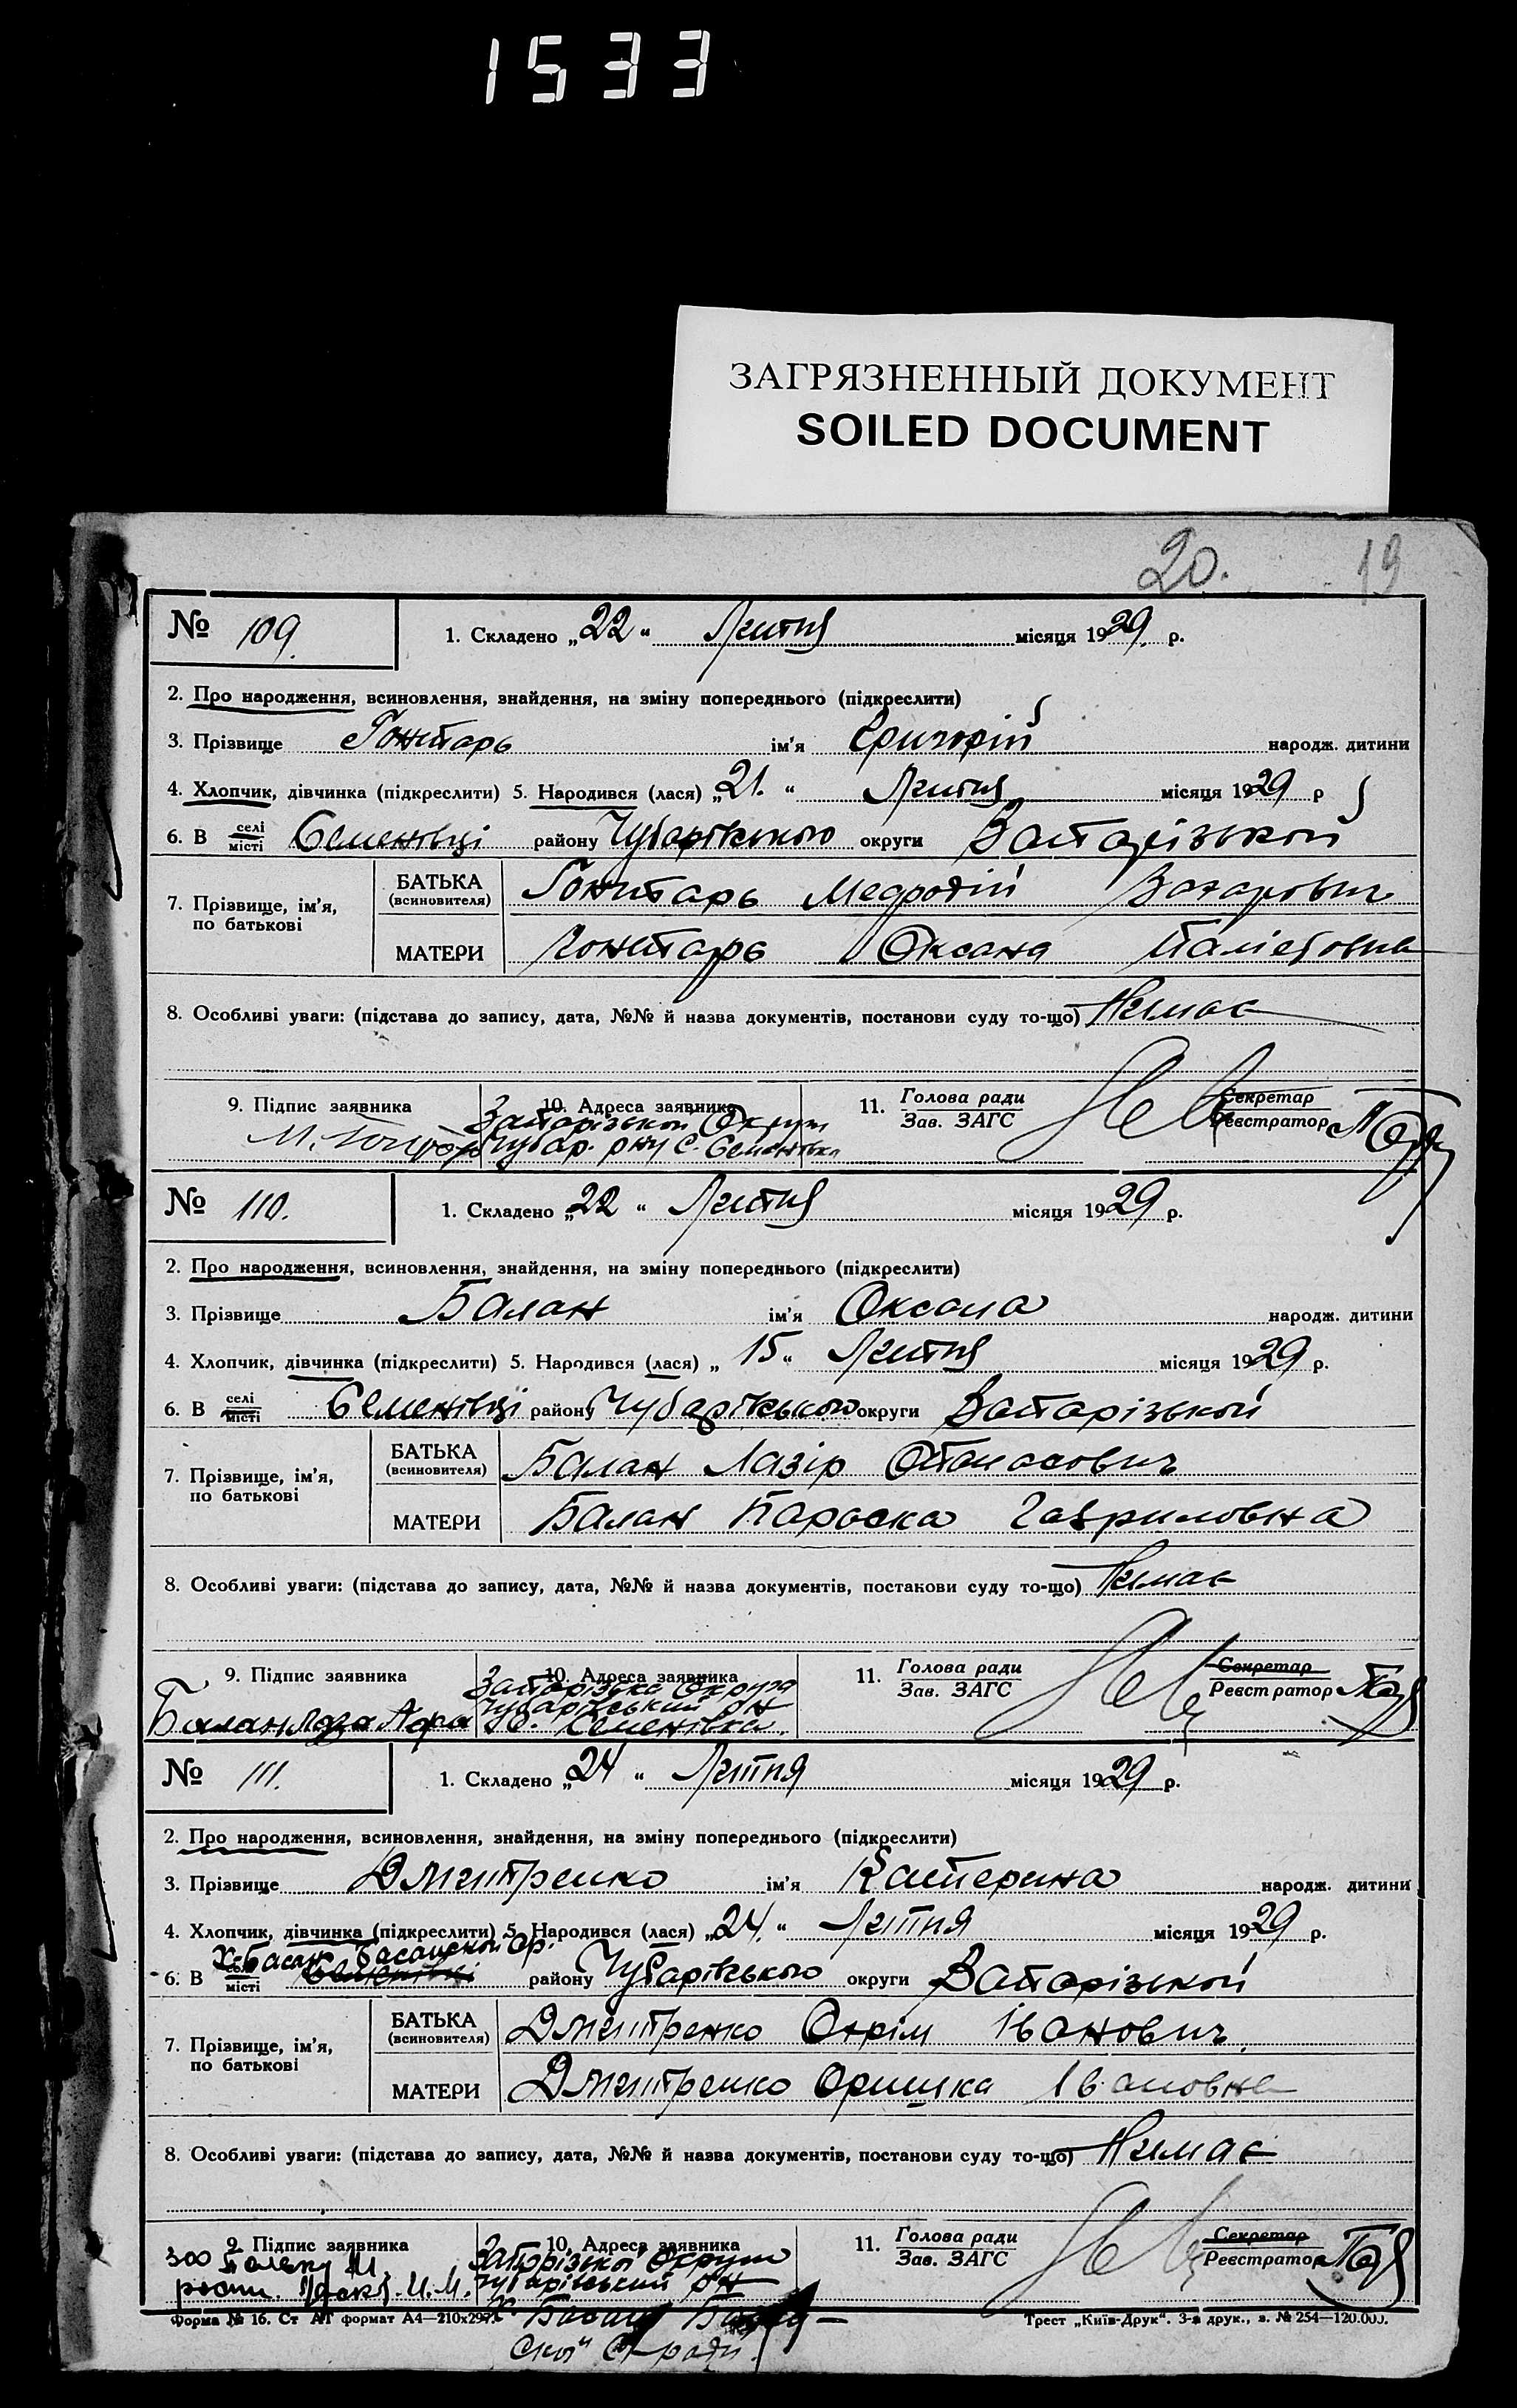 1533
ЗАГРЯЗНЕННЫЙ ДОКУМЕНТ
SOILED DOCUMENT
20. 19
№ 109. 1. Складено „22“ Лютня місяця 1929 р.
2. Про народження, всиновлення, знайдення, на зміну попереднього (підкреслити)
3. Прізвище Гонтарь ім'я Григорій народж. дитини
4. Хлопчик, дівчинка (підкреслити) 5. Народився (лася) „21.“ Лютня місяця 1929 р
6. В селі місті Семенівці району Чубарівського округи Запорізькой
7. Прізвище, ім'я, по батькові
БАТЬКА (всиновителя) Гонтарь Мефодій Захарович
МАТЕРИ Гонтарь Оксана
8. Особливі уваги: (підстава до запису, дата, №№ й назва документів, постанови суду то-що) Немає
9. Підпис заявника 10. Адреса заявника 11. Голова ради Секретар
Зав. ЗАГС Реєстратор
Запорізькой Округи
Чубар. р-ну С. Семенівка
№ 110. 1. Складено „22“ Лютня місяця 1929 р.
2. Про народження, всиновлення, знайдення, на зміну попереднього (підкреслити)
3. Прізвище Балан ім'я Оксана народж. дитини
4. Хлопчик, дівчинка (підкреслити) 5. Народився (лася) „15“ Лютня місяця 1929 р.
6. В селі місті Семенівці району Чубарівського округи Запорізькой
7. Прізвище, ім'я, по батькові
БАТЬКА (всиновителя) Балан Лазір Опанасович
МАТЕРИ Балан Параска Гавриловна
8. Особливі уваги: (підстава до запису, дата, №№ й назва документів, постанови суду то-що) Немає
9. Підпис заявника 10. Адреса заявника 11. Голова ради Секретар
Зав. ЗАГС Реєстратор
Запорізька Округа
Чубарівський р-н
Балан С. Семенівка.
№ 111. 1. Складено „24“ Лютня місяця 1929 р.
2. Про народження, всиновлення, знайдення, на зміну попереднього (підкреслити)
3. Прізвище Дмитренко ім'я Катерина народж. дитини
4. Хлопчик, дівчинка (підкреслити) 5. Народився (лася) „24.“ Лютня місяця 1929 р.
Х. Басань Басанской ср.
6. В селі місті Семенівці району Чубарівського округи Запорізькой
7. Прізвище, ім'я, по батькові
БАТЬКА (всиновителя) Дмитренко Охрім Іванович
МАТЕРИ Дмитренко Оришка Івановна
8. Особливі уваги: (підстава до запису, дата, №№ й назва документів, постанови суду то-що) Немає
9. Підпис заявника 10. Адреса заявника 11. Голова ради Секретар
Зав. ЗАГС Реєстратор
Запорізької Округи
Чубарівський р-н
Форма № 16. Ст АТ формат А4—210х297. Трест „Київ-Друк“. 3-я друк., з. № 254—120.000.
ської С-ради.